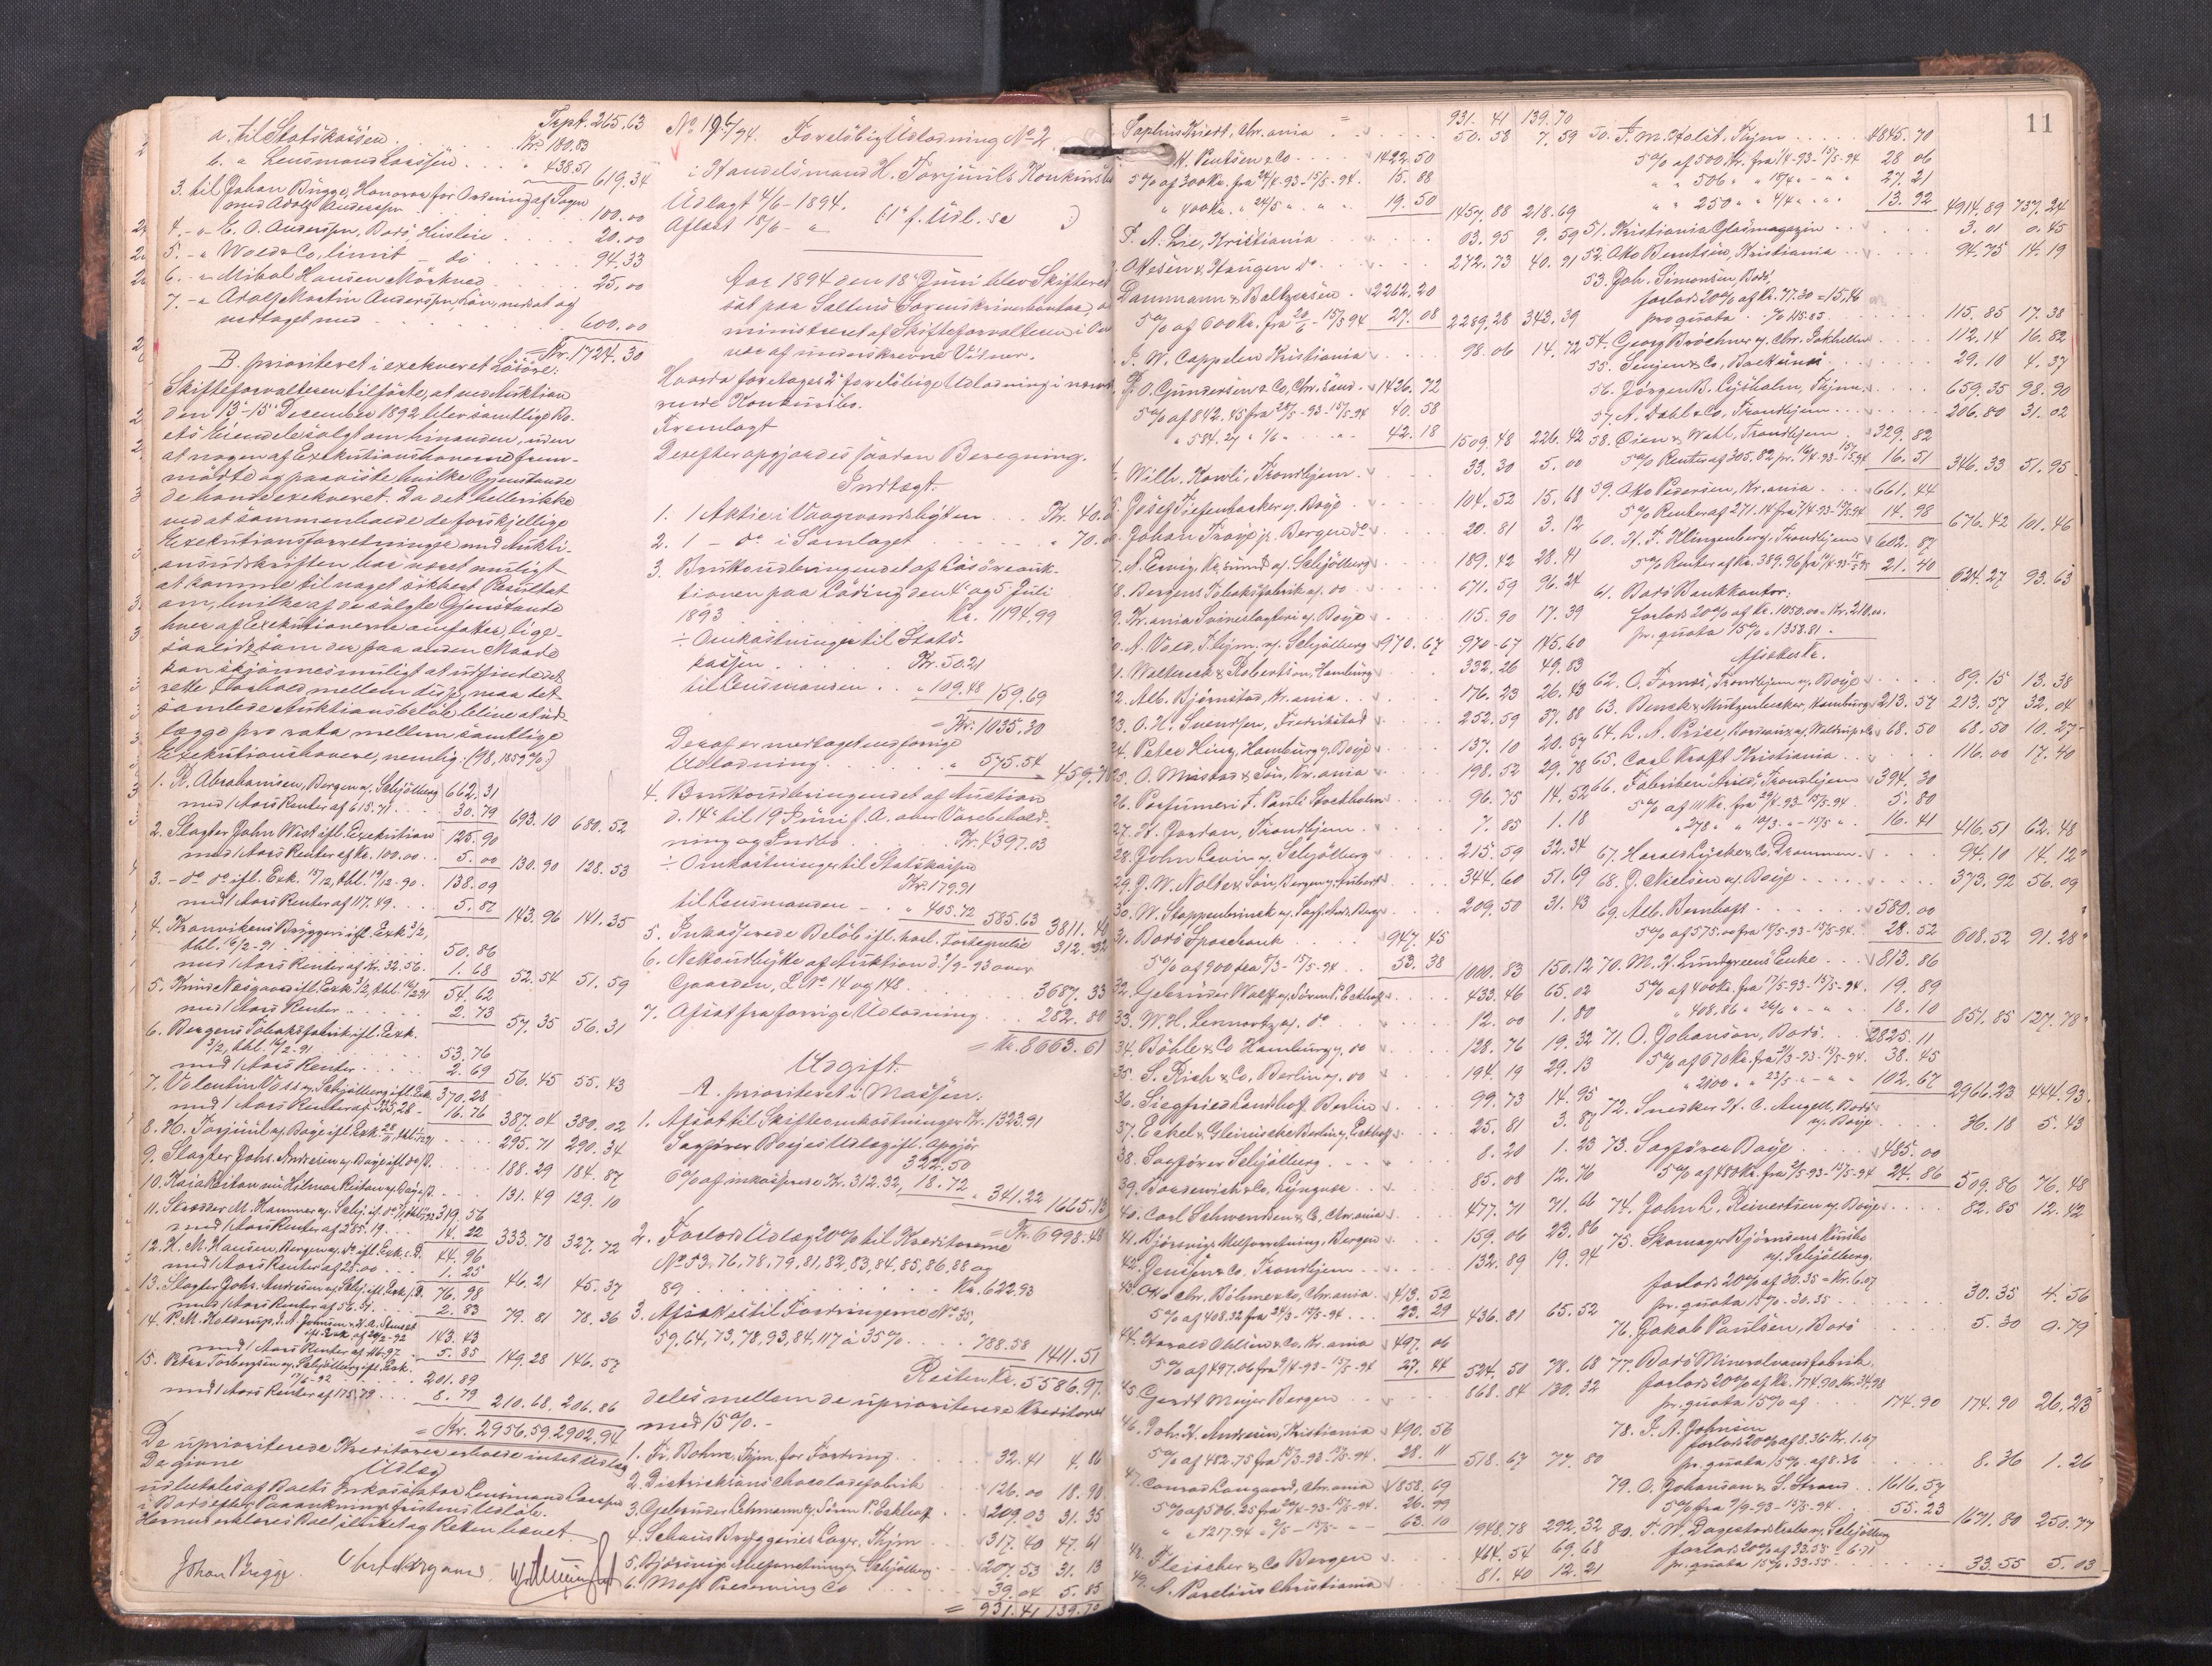 Trpt. 265.63
a. til Statskassen . . Kr. 180.83
b. " Lensmand Larssen . . " 438.51 619.34
3. til Johan Bügge, Honorar for Ordning af Sagen
med Adolf Anderssen . . . 100.00
4. - " E. O. Anderssen, Bodö, Husleie . . . 20.00
5. - " Wold & Co, limit - do . . . 94.33
6. - " Mikal Hansen Mörkved . . . 25,00
7. - " Adolf Martin Anderssen,
vedtaget med . . . 600.00
= Kr. 1724.30
B. prioriteret i exekveret Lösöre:
Skifteforvalteren tilförte, at ved Auktion
den 13-15 December 1892 blev samtlige Bo-
ets Eiendele solgt om hinanden, uden
at nogen af Exekutionshaverne frem-
mödte og paaviste, hvilke Gjenstande
de havde exekveret. Da det heller ikke
ved at sammenholde de forskjellige
Exekutionsforretninger med Aukti-
onsudskriften har været muligt
at komme til noget sikkert Resultat
om, hvilke af de solgte Gjenstande
hver af Exekutionerne omfatter, lige-
saalidt som der paa anden Maade
kan skjönnes muligt at udfinde det
rette Forhold mellem disse, maa det
samlede Auktionsbelöb blive at ud-
lægge pro rata mellem samtlige
Exekutionshavere, nemlig: (98,1859 %)
1. R. Abrahamsen, Bergen v. Schjölberg 662.31
med 1 Aars Renter af 615.71 . . 30.79 693.10 680.52
2. Slagter John West ifl. Exekution 125.90
med 1 Aars Renter af Kr. 100.00 . . 5.00 130.90 128.53
3. - do do ifl. Exk. 15/12, thl. 19/12-90 . 138.09
med 1 Aars Renter af 117.49 . . . 5.87 143.96 141.35
4. Tranvikens Bryggeri ifl. Exk 3/2,
thl. 16/2-91 . . . 50.86
med 1 Aars Renter af Kr. 32.56 . 1.68 52.54 51.59
5. Knud Nesgaard ifl. Exk 3/2, thl. 16/2 91 54.62
med 1 Aars Renter . . . 2.73 57.35 56.31
6. Bergens Tobaksfabrik ifl. Exk.
3/2, thl. 16/2-91 . . . 53.76
med 1 Aars Renter . . . 2.69 56.45 55.43
7. Valentin Voss v. Schjölberg ifl. Exk. 370.28
med 1 Aars Renter af 325,28 - 16.76 387.04 380.02
8. H. Torjuul v. Boye ifl. Exk. . . . 295.71 290.34
9. Slagter Johs. Andresen v. Boye ifl. do . . . 188.29 184.87
10. . . . v. Boye . . . 131.49 129.10
11. Skrædder M. Hammer v. Schj. . . . 319.56
med 1 Aars Renter af 285.19 . . . 14.22 333.78 327.72
12. H. M. Hansen, Bergen v. do ifl. Exk. 44.96
med 1 Aars Renter af 25.00 . . . 1.25 46.21 45.37
13. Slagter Johs. Andresen v. Schj. ifl. Exk. 76.98
med 1 Aars Renter af 56.51 . . . 2.83 79.81 78.36
14. P. M. Kolderup, J. A. Johnsen & H. A.
143.43
med 1 Aars Renter af 116.97 . 5.85 149.28 146.57
15. Petra Torbergsen v. Schjölberg ifl. Exk.
. . . 201.89
med 1 Aars Renter af 175,79 . . . 8.79 210.68. 206.86
= Kr. 2956.59. 2902.94
De uprioriterede Kreditorer erholde intet Udlæg
De givne Udlæg
udbetales af Boets Inkassator Lensmand Larssen
i Bodö efter Paaankningsfristens Udlöb.
Hermed erklæres Boet sluttet og Retten hævet
Johan Bügge.
No 196/94. Foreløbig Udlodning No 2
i Handelsmand H. Torjuuls Konkursbo
Udlagt 4/6-1894.
Aflagt 18/6 - "
Aar 1894 den 18de Juni blev Skifteret
sat paa Saltens Sorenskriverkontor, ad-
ministreret af Skifteforvalteren i Over-
vær af underskrevne Vidner.
Hvorda foretoges 2den foreløbige Udlodning i nævn-
sende Konkursbo.
Fremlagt
Derefter opgjordes saadan Beregning.
Indtægt.
1. 1 Aktie i Vaagvandsbygten . . . Kr. 40.
2. 1 - do i Samlaget . . . " 70.
3. Bruttoudbringendet af Lösöreauk-
tionen paa Löding den 4 og 5 Juli
1893 . . . Kr. 1194.99
÷ Omkostninger til Stats-
kassen . . . Kr. 50.21
til Lensmanden . . " 109.48 159.69
= Kr. 1035.30
Deraf er medtaget ved forrige
Udlodning . . . " 575.54 459.76
4. Bruttoudbringendet af Auction
d. 14de til 19 Juni f. A. over Varebehold-
ning og Indbo . . . Kr. 4397.03
÷ Omkostninger til Statskassen
Kr. 179.91
til Lensmanden - . " 405.72 585.63 3811.40
5. Inkasserede Belöb ifl. . . . 312.32
6. Nettoudbytte af Auktion d. 2/9-93 over
Gaarden, L. No 14 og 148 . . . 3687.33
7. Afsat fra forrige Udlodning . . . 282.80
= Kr. 8663.61
Udgift.
A. prioriteret i Massen:
1. Afsat til Skifteomkostninger Kr. 1323.91
Sagförer Boyes Udlæg ifl. Opgjör
322.50
6 % af inkasserede Kr. 312.32, 18.72 " 341.22 1665.13
= Kr. 6998.48
2. Forlods Udlæg 20 % til Kreditorerne
No 53, 76, 78, 79, 81, 82, 83, 84, 85, 86, 88 og
89 . . . Kr. 622.93
3. Afsættes til Fordringerne No 35,
59, 64, 73, 78, 93, 84, 117 à 35 % . . . 788.58 1411.51
Resten Kr. 5586.97.
deles mellem de uprioriterede Kreditorer
med 15 %. -
1. Fr. Bohne, Thjm for Fordring . . . 32.41 4.86
2. Distriktions Chocoladefabrik . . . 126.00 18.90
3. Gebrüder Lehmann v. Sören P. Eckhoff . . . 209.03 31.35
4. Schous Bryggeries Lager, Thjm . . . 317.40 47.61
5. Björsvigs Melforretning v. Schjölberg . . . 207.53 31.13
6. Moss Preserving Co . . . 39.04 5.85
= 931.41 139.70
11
931. 41 139.70
Sophus Kierdt, Chr.ania . . . 50.58 7.59
H. Pentsen & Co . . . 1422.50
5 % af 300 Kr. fra 24/4-93-15/5-94. 15.88
" 400 Kr. " 24/5 " . " . " . 19.50 1457.88 218.69
J. A. Lie, Kristiania . . . 63.95 9.59
Ottesen & Haugen do . . . 272.73 40.91
Dammann & Baltzersen . 2262.20
5 % af 600 Kr. fra . . . 27.08 2289.28 343.39
J. W. Cappelen Kristiania . . . 98.06 14.72
F. O. Gundersen & Co, Chr.sand . 1426.72
5 % af 842,45 fra . . . 40.58
" 584.27 " 1/6 " . . . 42.18 1509.48 226.42
Wilh. Kavli, Trondhjem . . . 33.30 5.00
Josef Tiefenbacher v. Boye . . . 104.52 15.68
Johan Tröye jr. Bergen do . . . 20.81 3.12
. Ernig, Kr.sund v. Schjölberg . . . 189.42 28.41
18. Bergens Tobaksfabrik v. do . . . 671.59 96.24
19. Kr.ania Svineslagteri v. Boye . . . 115.90 17.39
20. A. Voed, T.hjm. v. Schjölberg 970.67 970.67 145.60
21. Walterech & Robertson, Hamburg . . . 332.26 49.83
22. Alb. Bjørnstad, Kr.ania . . . 176.23 26.43
23. O. H. Svendsen, Fredrikstad . . . 252.59 37.88
24. Peter Hinz, Hamburg v. Boye . . . 137.10 20.57
25. O. Mustad & Sön, Kr.ania . . . 198.52 29.78
26. Parfumeri F. Pauli Stockholm . . . 96.75 14.52
27. H. Jordan, Trondhjem . . . 7.85 1.18
28. John Levin v. Schjölberg . . . 215.59 32.34
29. J. W. Nolte & Sön, Bergen v. . . . 344.60 51.69
30. W. Stoppenbrinck v. . . . 209.50 31.43
31. Bodö Sparebank . . . 947.45
5 % af 900 fra 5/3-15/5-94 . . 53.38 1000.83 150.12
32. Gebrüder Wolff v. Sören P. Eckhoff . . . 433.46 65.02
33. W. H. Lennartz v. do . . . 12.00 1.80
34. Böhle & Co Hamburg v. do . . . 128.76 19.32
35. S. Rich & Co. Berlin v. do . . . 194.19 29.13
36. Siegfried Landshoff Berlin . . . 99.73 14.95
37. Eckel & Gleinicke Berlin v. Eckhoff . . . 25.81 3.87
38. Sagförer Schjölberg . . . 8.20 1.23
39. Bordewich & Co, Lyngvær . . . 85.08 12.76
40. Carl Schwensen & Co, Chr.ania . . . 477.71 71.66
41. Björsvigs Melforretning, Bergen . . . 159.06 23.86
42. Jenssen & Co. Trondhjem . . . 132.89 19.94
43. Otto Chr. Bilmer & Co, Chr.ania . 413.52
5 % af 408.32 fra 24/3-15/5-94 . . 23.29 436.81 65.52
44. Harald Ohlsen & Co, Kr.ania 497.06
5 % af 497.06 fra 9/4-93-15/5-94 27.44 524.50 78.68
45. Gerdt Meyer Bergen . . . 868.84 130.32
46. Joh. H. Andresen, Kristiania 490.56
5 % af 482.75 fra 15/3-93-15/5-94 . 28.11 518.67 77.80
47. Conrad Langaard, Chr.ania 1858.69
5 % af 506.25 fra 20/4-93-15/5-94 . 26.99
" " 1217.94 " 2/5-15/5- " - 63.10 1948.78 292.32
48. Fleischer & Co Bergen . . . 464.54 69.68
49. N. Parelius Christiania . . . 81.40 12.21
50. F. M. Holst, Thjm . . . 4845.70
5 % af 500 Kr. fra 1/4-93-15/5-94 28.06
" " 506 " " 18/4 " - " " 27.21
" " 250 " " 4/4 " . " . 13.92 4914.89 737.24
51. Kristiania Glasmagazin . . . 3.01 0.45
52. Otto Berntsen, Kristiania . . . 94.75 14.19
53. Joh. Simonsen, Bodö,
forlods 20 % af Kr. 77.30 = 15,46
pro quota . % 115.85 . . . 115.85 17.38
54. Georg Bröchner v. Chr. Lokhellen . . . 112.14 16.82
55. Jenssen & Co, Backlund . . . 29.10 4.37
56. Jörgen B. Lysholm, Thjm . . . 659.35 98.90
57. A. Dahl & Co, Trondhjem . . . 206.80 31.02
58. Oien & Wahl, Trondhjem . 329.82
5 % Renter af 305.82 pr. 16/4-93-15/5-94 16.51 346.33 51.95
59. Otto Pedersen, Kr.ania . . . 661.44
5 % Renter af 271.14 fra 7/4-93-15/5-94 14.98 676.42 101.46
60. H. F. Klingenberg, Trondhjem 602.87
5 % Renter af Kr. 389.96 fra 14/4-93-15/5-94 21.40 624.27 93.63
61. Bodö Bankkontor:
forlods 20 % af Kr. 1050.00 = Kr. 210.00.
pr. quota 15 % " 1358.81 -
Afsættes.
62. O. Fornæs, Trondhjem v. Boye . . . 89.15 13.38
63. Benck & Mutzenbecker, Hamburg 213.57 213.57 32.04
64. L. A. Price, Bordeaux v. . . . 68.50 68.50 10.27
65. Carl Krafft Kristiania . . . 116.00 17.40
66. Fabriken "Arild", Trondhjem 394.30
5 % af 111 Kr. fra 29/4-93-15/5-94 . 5.80
" 278 " " 10/3 . " - 15/5 " . 16.41 416.51 62.48
67. Harald Lycke & Co, Drammen . . . 94.10 14.12
68. J. Nielsen v. Boye . . . 373.92 56.09
69. Alb. Bernhoft . . . 580.00
5 % af 575.00 fra 17/5-93-15/5-94 . 28.52 608.52 91.28
70. M. H. Lundgreens Enke . . . 813.86
5 % af 400 Kr. fra 17/5-93-15/5-94 . 19.89
" 408.86 " 26/6 " - " " 18.10 851.85 127.78
71. O. Johansen, Bodö . . . 2825.11
5 % af 670 Kr. fra 21/3-93-15/5-94 . 38.45
" 2100 " " 23/5 " - " " 102.67 2966.23 444.93
72. Snedker H. C. Angell, Bodö
v. Boye . . . 36.18 5.43
73. Sagförer Boye . . . 485.00
5 % af 480 Kr. fra 2/5-93-15/5-94 24.86 509.86 76.48
74. John L. Reinertsen v. Boye . . . 82.85 12.42
75. Skomager Björnsens Konkursbo
v. Schjölberg.
forlods 20 % af 30.35 = Kr. 6.07
pr. quota 15 % - 30.35 . . . 30.35 4.56
76. Jakob Paulsen, Bodö . . . 5.30 0.79
77. Bodö Mineralvandsfabrik.
forlods 20 % af Kr. 174.90. Kr. 34.98
pr. quota 15 % af . . . 174.90 174.90 26.23
78. J. A. Johnsen
forlods 20 % af 8.36 Kr. 1.67
pr. quota 15 % af 8.36 . . . 8.36 1.26
79. O. Johansen v. S. Strand . 1616.57
5 % fra 9/9-93-15/5-94 . . 55.23 1671.80 250.77
80. F. W. Dagestads Konkursbo v. Schjölberg
forlods 20 % af 33.55 - 6.71
pr. quota 15 % . 33.55 . . . 33.55 5.03